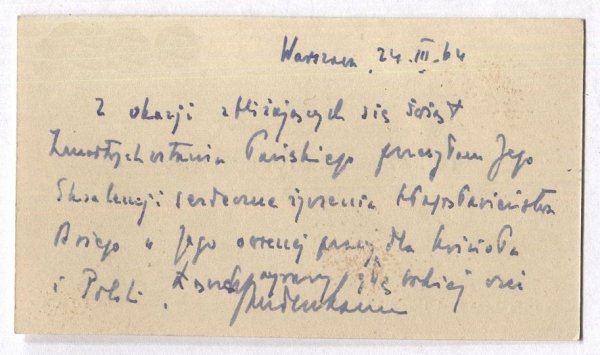 Warszawa, 24.III.64
Z okazji zbliżających się Świąt
Zmartwychwstania Pańskiego przesyłam Jego
Ekscelencji serdeczne życzenia błogosławieństwa
Bożego w Jego owocnej pracy dla Kościoła
i Polski. wyrazy głębokiej czci